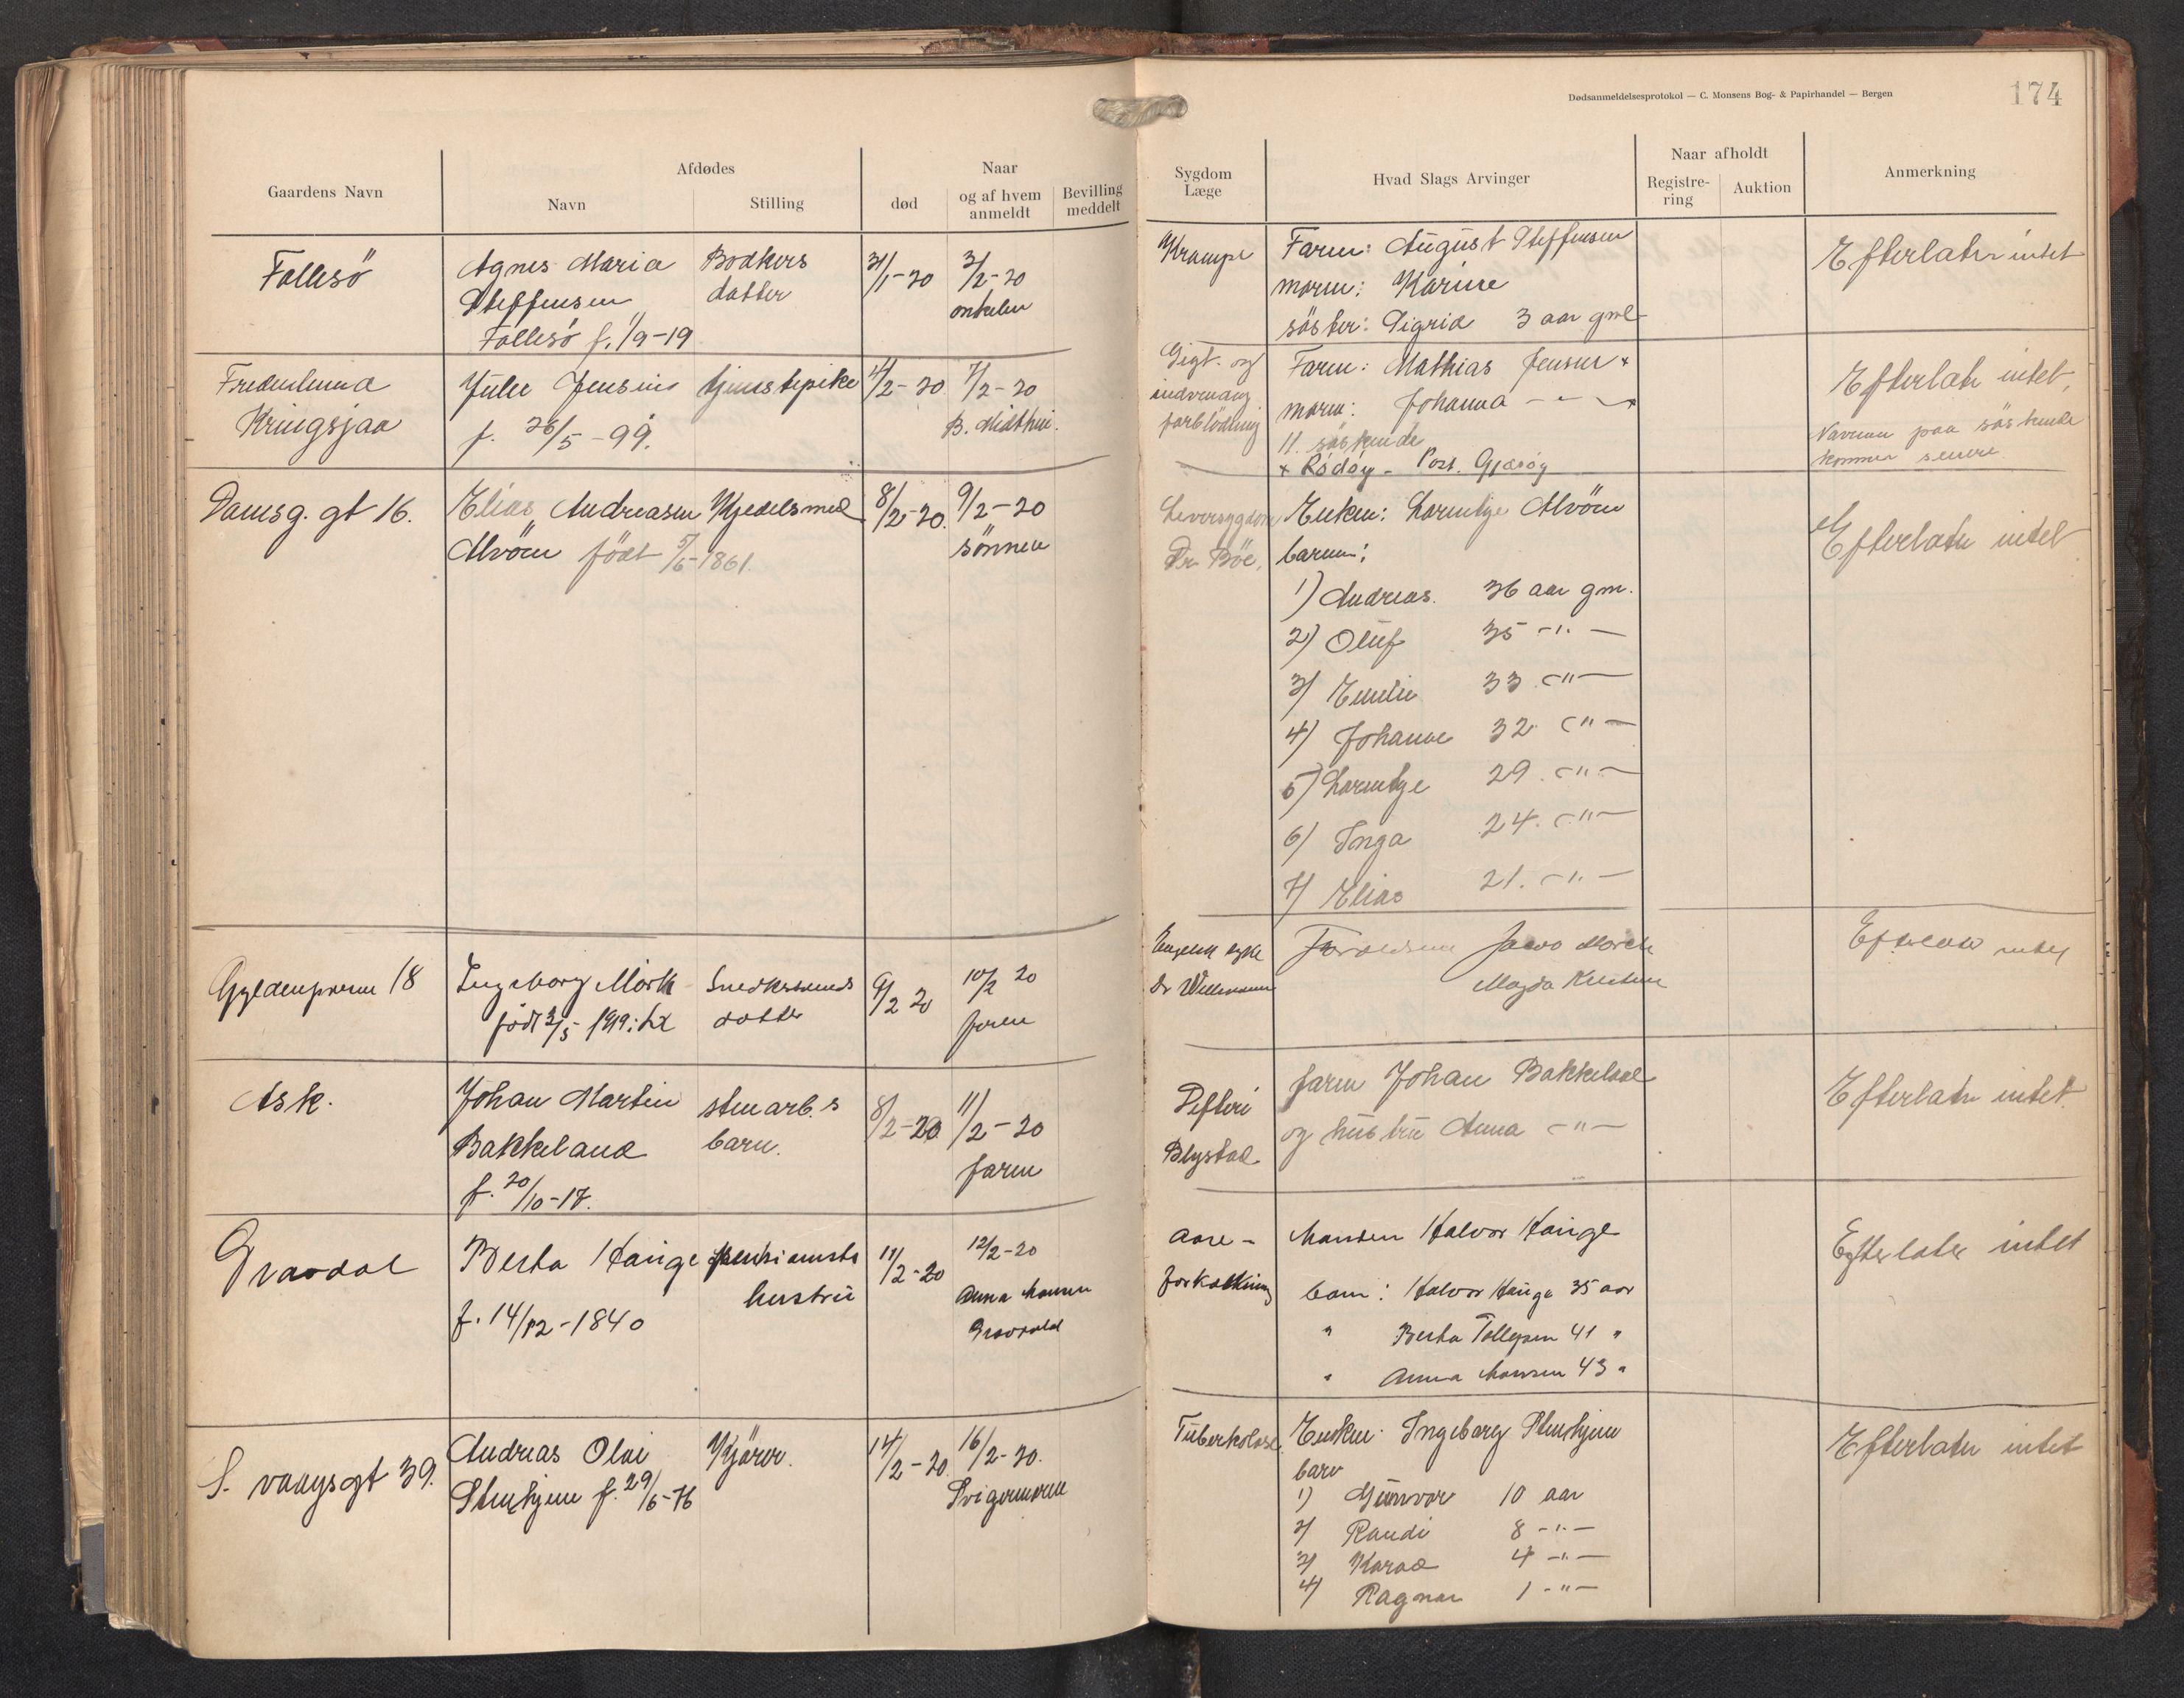 Dødsanmeldelsesprotokol — C. Monsens Bog- & Papirhandel — Bergen
174
Gaardens Navn
Afdødes
Navn
Stilling
Naar
død
og af hvem anmeldt
Bevilling meddelt
Sygdom Læge
Hvad Slags Arvinger
Naar afholdt
Registre-ring
Auktion
Anmerkning
Follesö
Agnes Maria
Steffensen
Follesö f. 1/9-19
Bödkers
datter
31/1-20
3/2-20
onkelen
Krampe
Faren: August Steffensen
moren: Karine
söster: Sigrid 3 aar gml
Efterlater intet
Fredenlund
Kringsjaa
Julie Jensine
f. 26/5-99.
tjenestepike
4/2-20
7/2-20
B. Midthun.
Gigt. og
indvendig
forblödning
Faren: Mathias Jensen x
moren: Johanna - " - x
11 söskende
x Rödöy - Post. Gjæröy
Efterlater intet,
Navnene paa söskende
kommer senere
Damsg. gt 16.
Elias Andreasen
Alvöen födt 5/6-1861.
Kjedelsmed
8/2-20.
9/2-20
sönnen
Leversygdom
Dr Böe,
Enken: Lorentze Alvöen
barn:
1) Andreas. 36 aar gm.
2) Oluf 35 -"-
3) Emilie 33 -"-
4) Johanne 32 -"-
5) Lorentze 29. -"-
6) Inga 24. -"-
7) Elias 21. -"-
Efterlater intet
Gyldenpræm 18
Ingeborg Mörk
födt 3/5 1919
Snedkersvends
datter
9/2 20
10/2 20
faren
Engelsk syke
Dr Willmann
Forældrene
Magda
Efterlater intet
Ask.
Johan Martin
Bakkeland
f. 20/10-17.
stenarb.s
barn.
8/2-20
11/2-20
faren
Difteri
Blystad
faren Johan Bakkeland
og hustru Anna -"-
Efterlater intet.
Gravdal
Berta Hauge
f. 14/12-1840
pensionists
hustru
11/2-20
12/2-20
Anna Monsen
Gravdal
Aare-
forkalkning
Manden Halvor Hauge
barn: Halvor Hauge 35 aar
" Berta Tollefsen 41 "
" Anna Monsen 43 "
Efterlater intet
S. vaagsgt 39.
Andreas Olai
Stenhjem f. 29/6-76
Kjörer.
14/2-20
16/2-20.
Svigermoren
Tuberkolose.
Enken: Ingeborg Stenhjem
barn
1) Gunvor 10 aar
2) Randi 8 -"-
3) Harald 4 -"-
4) Ragnar 1 -"-
Efterlater intet